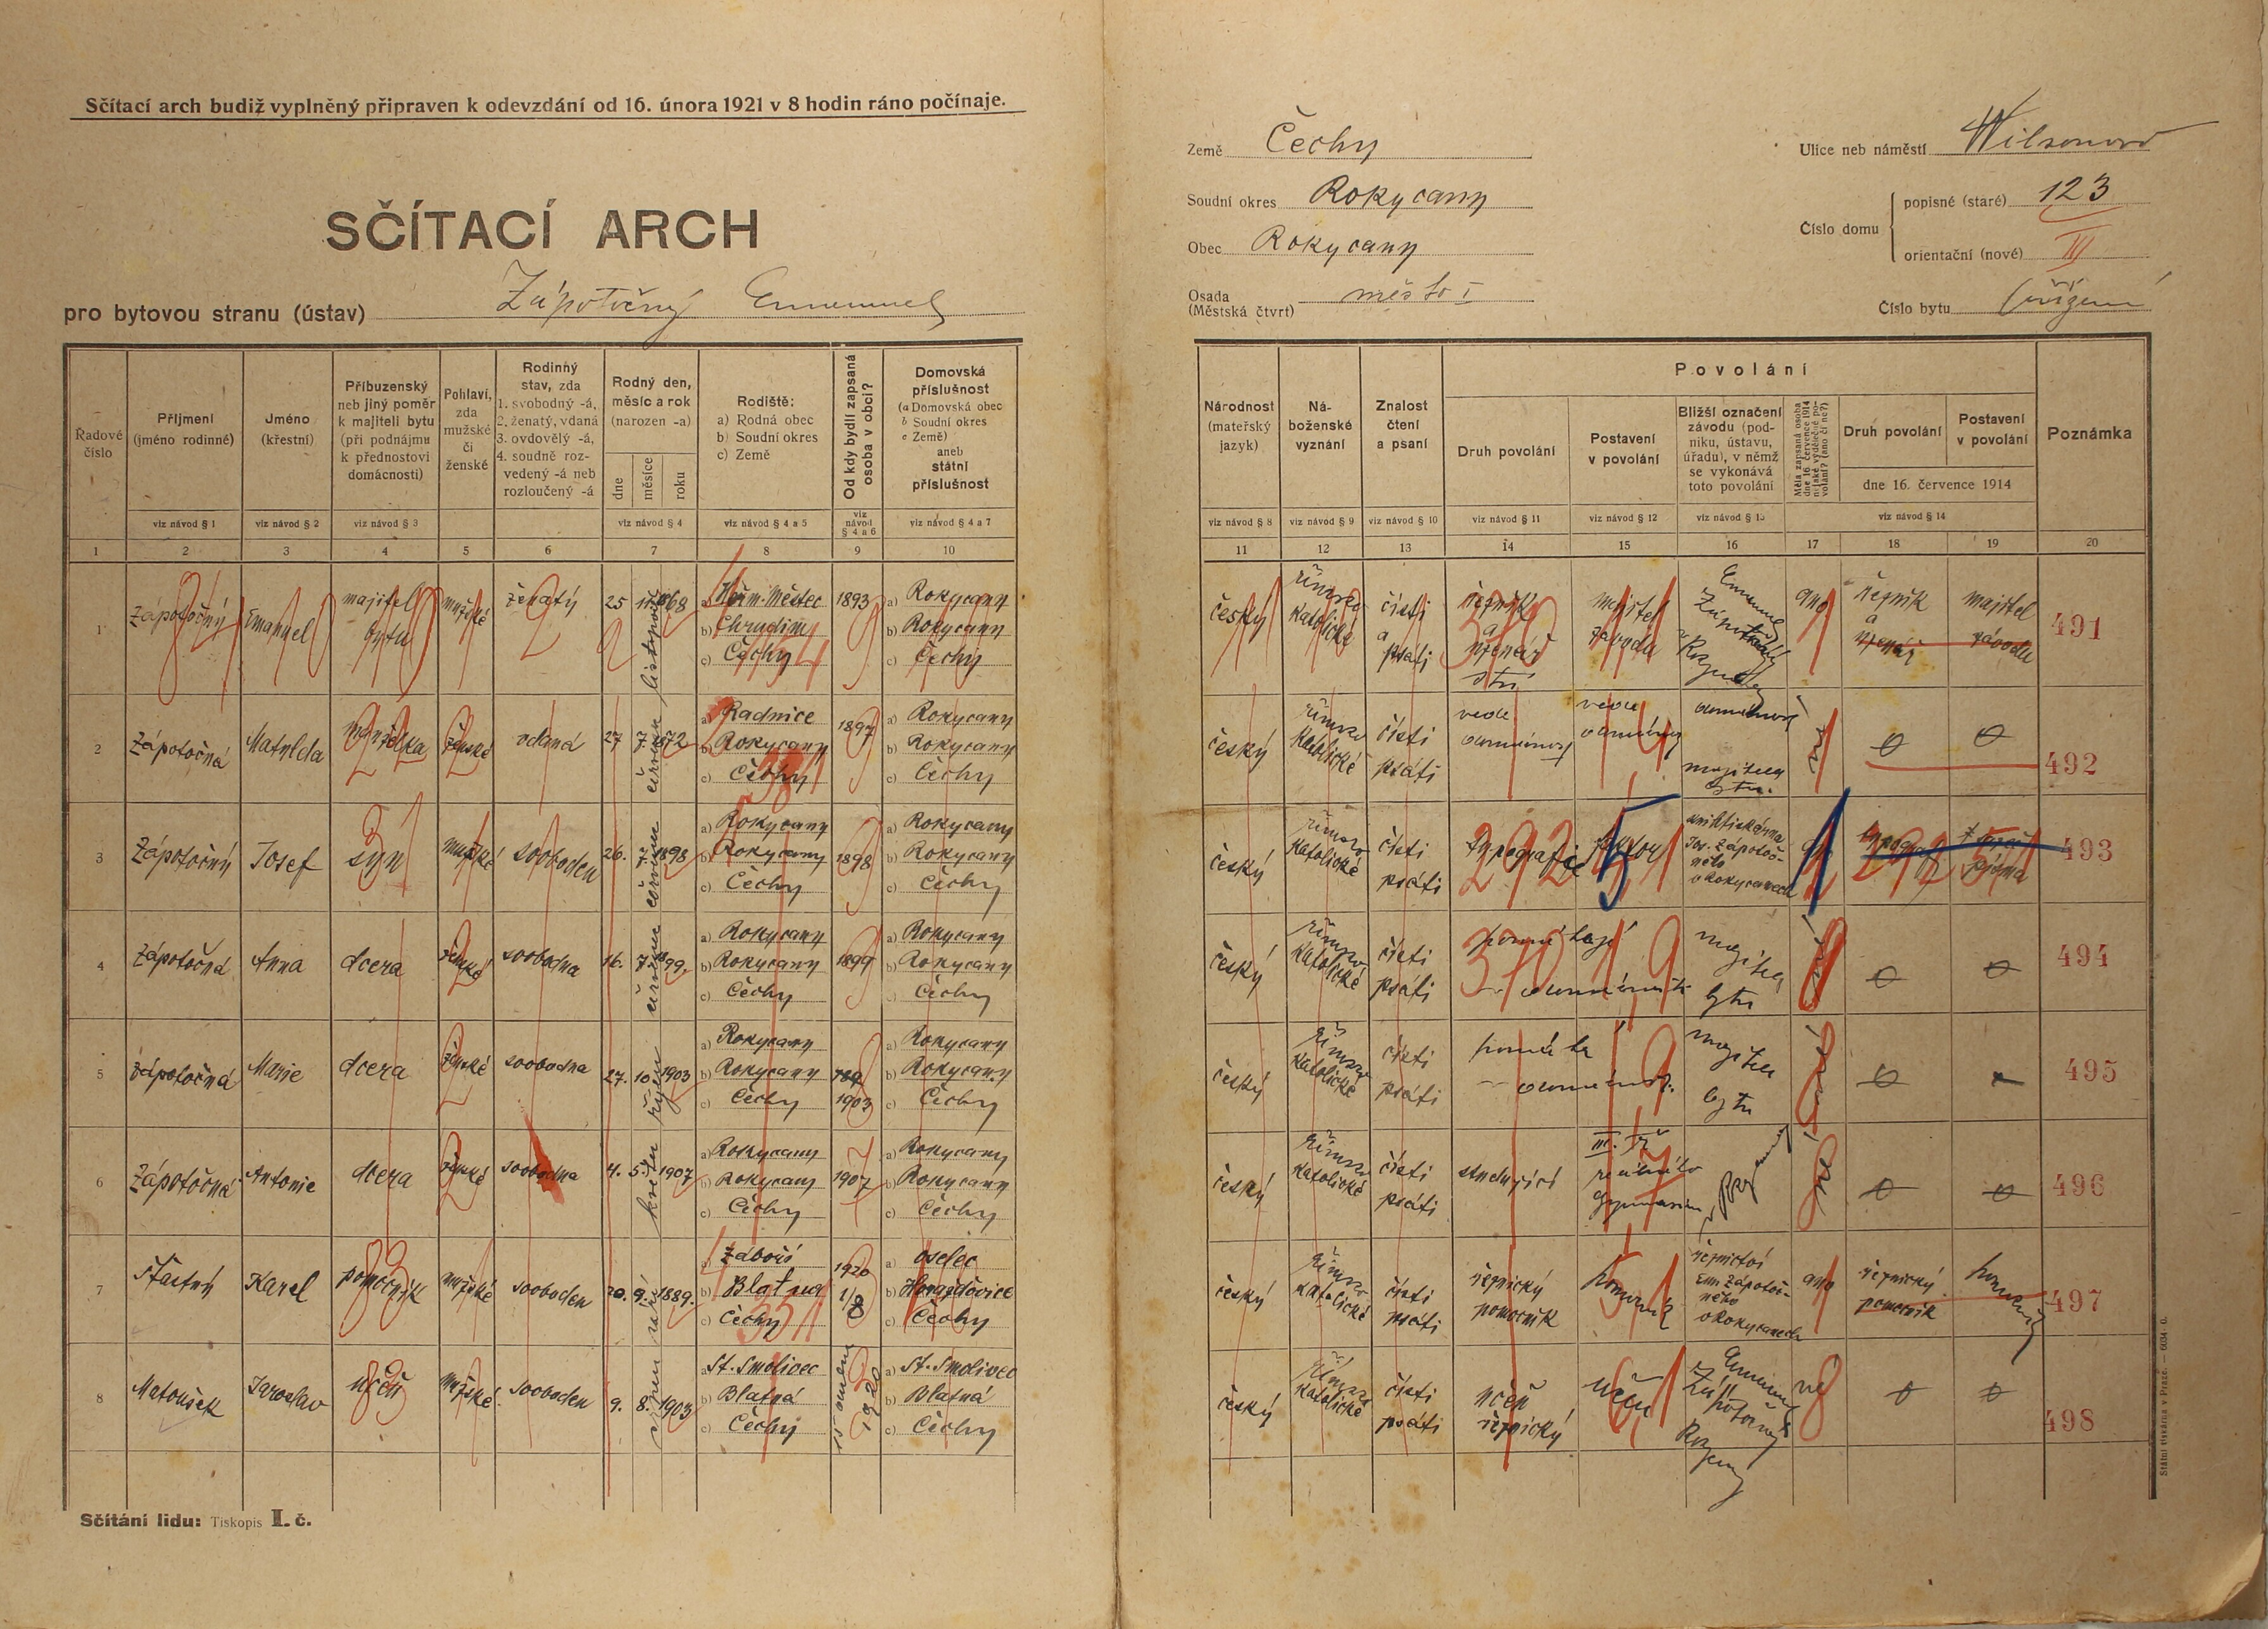 Sčítací arch budiž vyplněný připraven k odevzdání od 16. února 1921 v 8 hodin ráno počínaje.
SČÍTACÍ ARCH
pro bytovou stranu (ústav) Zápotočný Emanuel
Země Čechy
Soudní okres Rokycany
Obec Rokycany
Osada (Městská čtvrť) město I
Ulice neb náměstí Wilsonova
Číslo domu
popisné (staré) 123
orientační (nové) III
Číslo bytu přízemí
Řadové číslo
Příjmení (jméno rodinné)
Jméno (křestní)
Příbuzenský neb jiný poměr k majiteli bytu (při podnájmu k přednostovi domácnosti)
Pohlaví, zda mužské či ženské
Rodinný stav, zda 1. svobodný -á, 2. ženatý, vdaná 3. ovdovělý -á, 4. soudně rozvedený -á neb rozloučený -á
Rodný den, měsíc a rok (narozen -a)
dne měsíce roku
Rodiště: a) Rodná obec b) Soudní okres c) Země
Od kdy bydlí zapsaná osoba v obci?
Domovská příslušnost (a Domovská obec b Soudní okres c Země) aneb státní příslušnost
viz návod § 1 viz návod § 2 viz návod § 3 viz návod § 4 viz návod § 4 a 5 viz návod § 4 a 6 viz návod § 4 a 7
1 2 3 4 5 6 7 8 9 10
Národnost (mateřský jazyk)
Náboženské vyznání
Znalost čtení a psaní
Povolání
Druh povolání
Postavení v povolání
Bližší označení závodu (podniku, ústavu, úřadu), v němž se vykonává toto povolání
Měla zapsaná osoba dne 16. července 1914 nějaké výdělečné povolání? (ano či ne?)
Druh povolání
Postavení v povolání
dne 16. července 1914
Poznámka
viz návod § 8 viz návod § 9 viz návod § 10 viz návod § 11 viz návod § 12 viz návod § 13 viz návod § 14
11 12 13 14 15 16 17 18 19 20
1 Zápotočný Emanuel majitel bytu mužské ženatý 25 11. listopad 1868 a) Heřm. Městec b) Chrudim c) Čechy 1893 a) Rokycany b) Rokycany c) Čechy
český římsko katolické čísti a psáti řezník a uzenář majitel závodu Emanuel Zápotočný v Rokycany ano řezník a uzenář majitel závodu 491
2 Zápotočná Matylda manželka ženské vdaná 27 7. červenec 1872 a) Radnice b) Rokycany c) Čechy 1897 a) Rokycany b) Rokycany c) Čechy
český římsko katolické čísti psáti vede domácnost vede domácnost majitele bytu. ne 0 0 492
3 Zápotočný Josef syn mužské svoboden 26. 7. 1898 a) Rokycany b) Rokycany c) Čechy 1898 a) Rokycany b) Rokycany c) Čechy
český římsko katolické čísti psáti typografie faktor knihtiskárna Jos. Zápotočného v Rokycanech typograf 493
4 Zápotočná Anna dcera ženské svobodna 16. 7. 1899 a) Rokycany b) Rokycany c) Čechy 1899 a) Rokycany b) Rokycany c) Čechy
český římsko katolické čísti psáti pomáhají v domácnosti majitel bytu ne 0 0 494
5 Zápotočná Marie dcera ženské svobodna 27. 10. říjen 1903 a) Rokycany b) Rokycany c) Čechy 1903 a) Rokycany b) Rokycany c) Čechy
český římsko katolické čísti psáti pomáhá v domácnosti. majitel bytu ne 0 495
6 Zápotočná Antonie dcera ženské svobodna 4. 5. květen 1907 a) Rokycany b) Rokycany c) Čechy 1907 a) Rokycany b) Rokycany c) Čechy
český římsko katolické čísti psáti studující III. tř. reálného gymnasia ne 0 0 496
7 Šťastný Karel pomocník mužské svoboden 20. 9. září 1889. a) Záboří b) Blatná c) Čechy 1920 1/8 a) Oselec b) Horažďovice c) Čechy
český římsko katolické čísti psáti řeznický pomocník pomocník řeznictví Em. Zápotočného v Rokycanech ano řeznický pomocník pomocník 497
8 Matoušek Jaroslav učeň mužské svoboden 9. 8. srpen 1903 a) St. Smolivec b) Blatná c) Čechy 1920 a) St. Smolivec b) Blatná c) Čechy
český římsko katolické čísti psáti učeň řeznický učeň Emanuel Zápotočný Rokycany ne 0 0 498
Sčítání lidu: Tiskopis I. č.
Státní tiskárna v Praze. — 6034 -0.